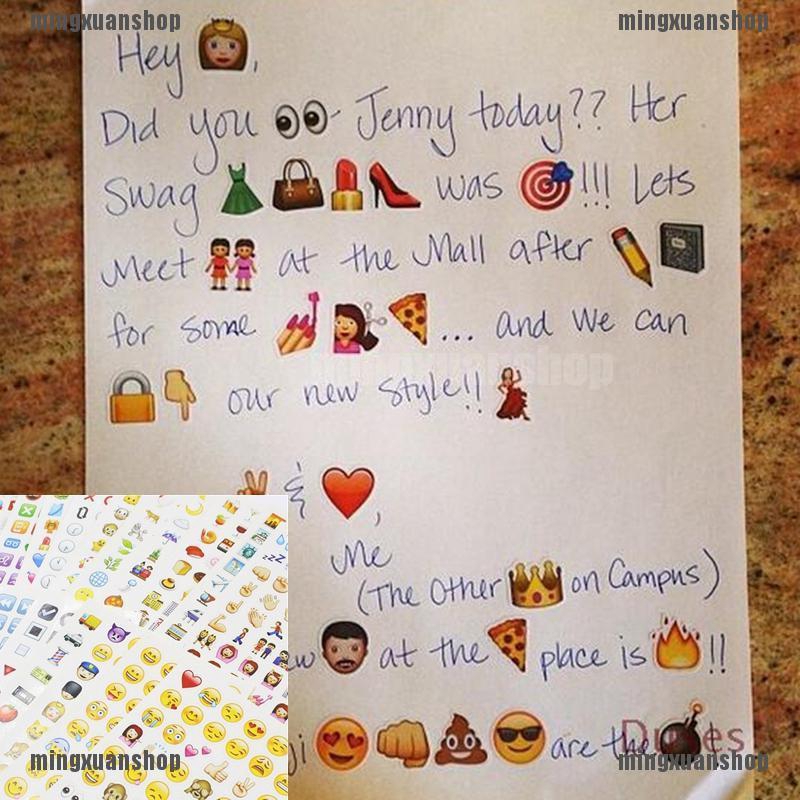 mingxuanshop mingxuanshop
Hey 👸,
Did you 👀 Jenny today?? Her
Swag 👗👜💄👠 was 🎯!!! Lets
Meet 👭 at the Mall after ✏️📓
for some 💅💇🍕... and we can
🔒👇 our new style!! 💃
mingxuanshop
✌️ & ❤️,
Me
(The Other 👑 on Campus)
at the 🍕 place is 🔥!!
😍👊💩😎 are the 💣
mingxuanshop mingxuanshop